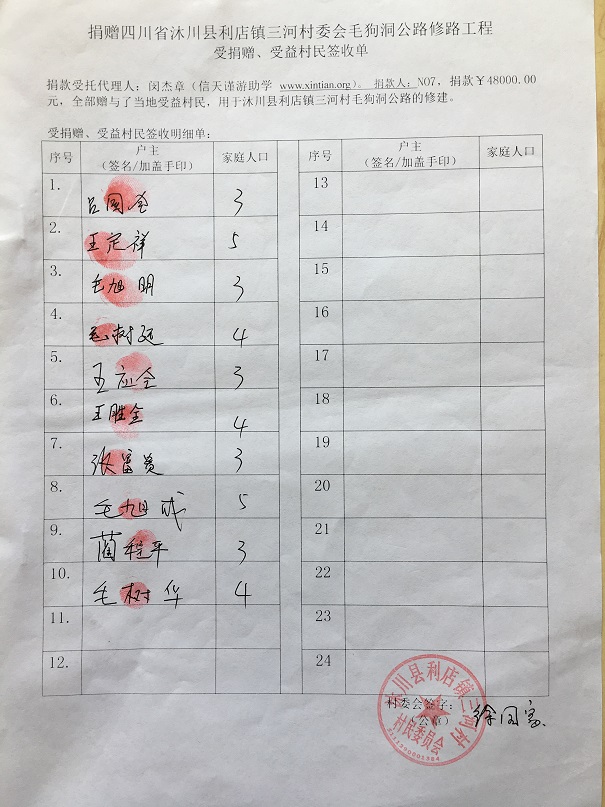 捐赠四川省沐川县利店镇三河村委会毛狗洞公路修路工程
受捐赠、受益村民签收单
捐款受托代理人：闵杰章（信天谨游助学 www.xintian.org）。捐款人：N07，捐款￥48000.00
元，全部赠与了当地受益村民，用于沐川县利店镇三河村毛狗洞公路的修建。
受捐赠、受益村民签收明细单：
序号 户主（签名/加盖手印） 家庭人口 序号 户主（签名/加盖手印） 家庭人口
1. 吕国 3 13
2. 王定祥 5 14
3. 毛旭明 3 15
4. 毛树 4 16
5. 王应全 3 17
6. 王胜全 4 18
7. 张富贵 3 19
8. 毛旭成 5 20
9. 蔺程平 3 21
10. 毛树华 4 22
11. 23
12. 24
村委会签字： 徐国富
（公章）
沐川县利店镇三河村
村民委员会